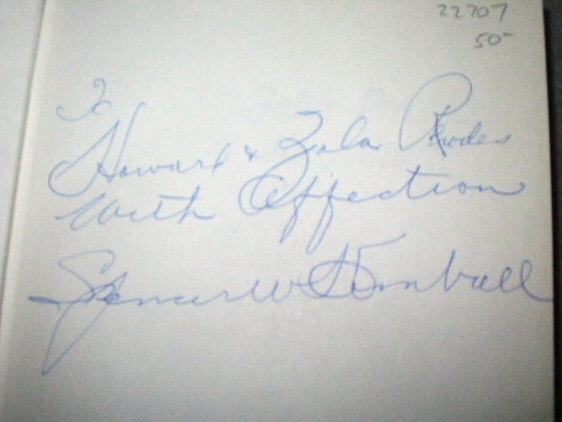 22707
50-
To
Howard & Zola Rhodes
With Affection
Spencer W Kimball